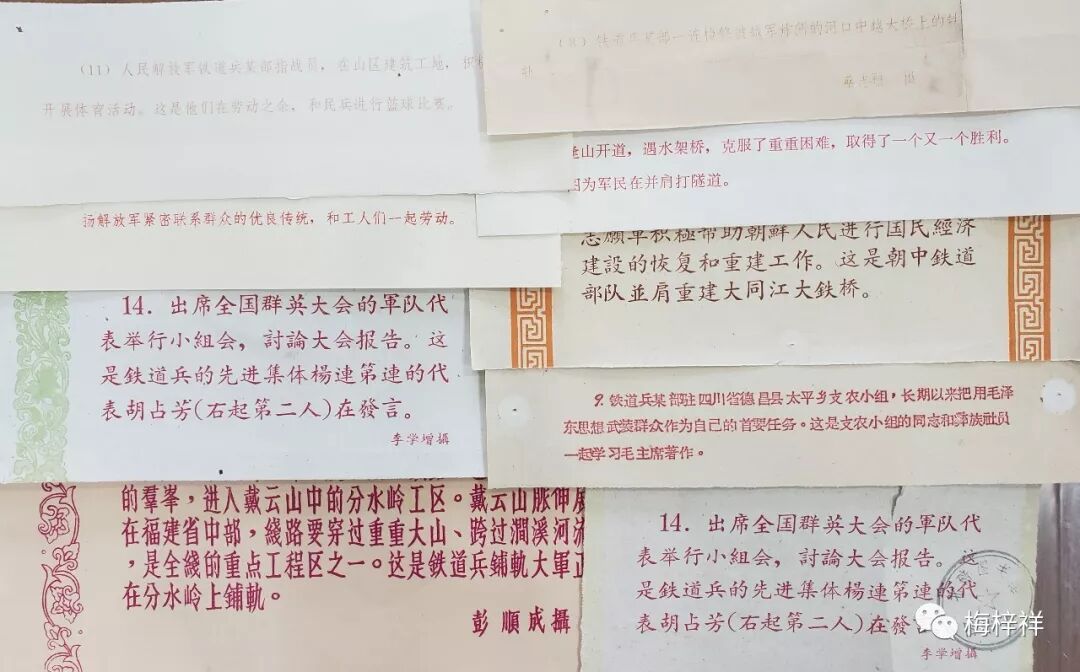 (11) 人民解放军铁道兵某部指战员，在山区建筑工地，积
开展体育活动。这是他们在劳动之余，和民兵进行篮球比赛。
(8) 铁道兵某部一连抢修被敌军炸倒的河口中越大桥上的
摄
山开道，遇水架桥，克服了重重困难，取得了一个又一个胜利。
因为军民在并肩打隧道。
扬解放军紧密联系群众的优良传统，和工人们一起劳动。
志願軍积極帮助朝鮮人民进行国民經济
建設的恢复和重建工作。这是朝中鉄道
部队並肩重建大同江大鉄桥。
14. 出席全国群英大会的軍队代
表举行小組会，討論大会报告。这
是鉄道兵的先进集体楊連第連的代
表胡占芳(右起第二人)在發言。
李学增攝
9. 铁道兵某部驻四川省德昌县太平乡支农小组，长期以来把用毛泽
东思想武装群众作为自己的首要任务。这是支农小组的同志和彝族社员
一起学习毛主席著作。
的羣峯，进入戴云山中的分水岭工区。戴云山脈伸展
在福建省中部，綫路要穿过重重大山、跨过澗溪河流
，是全綫的重点工程区之一。这是鉄道兵鋪軌大軍正
在分水岭上鋪軌。
彭順成攝
14. 出席全国群英大会的軍队代
表举行小組会，討論大会报告。这
是鉄道兵的先进集体楊連第連的代
表胡占芳(右起第二人)在發言
李学增攝
梅梓祥